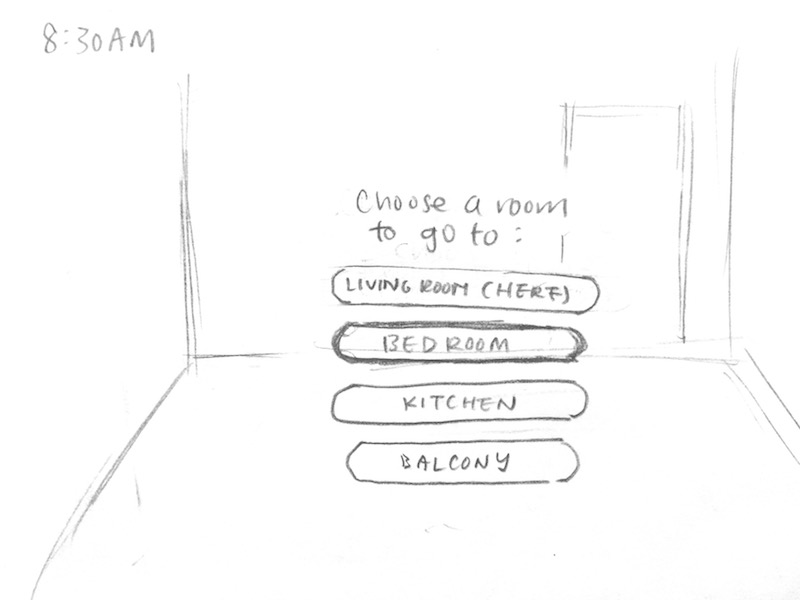 8:30AM
Choose a room
to go to:
LIVING ROOM (HERE)
BEDROOM
KITCHEN
BALCONY